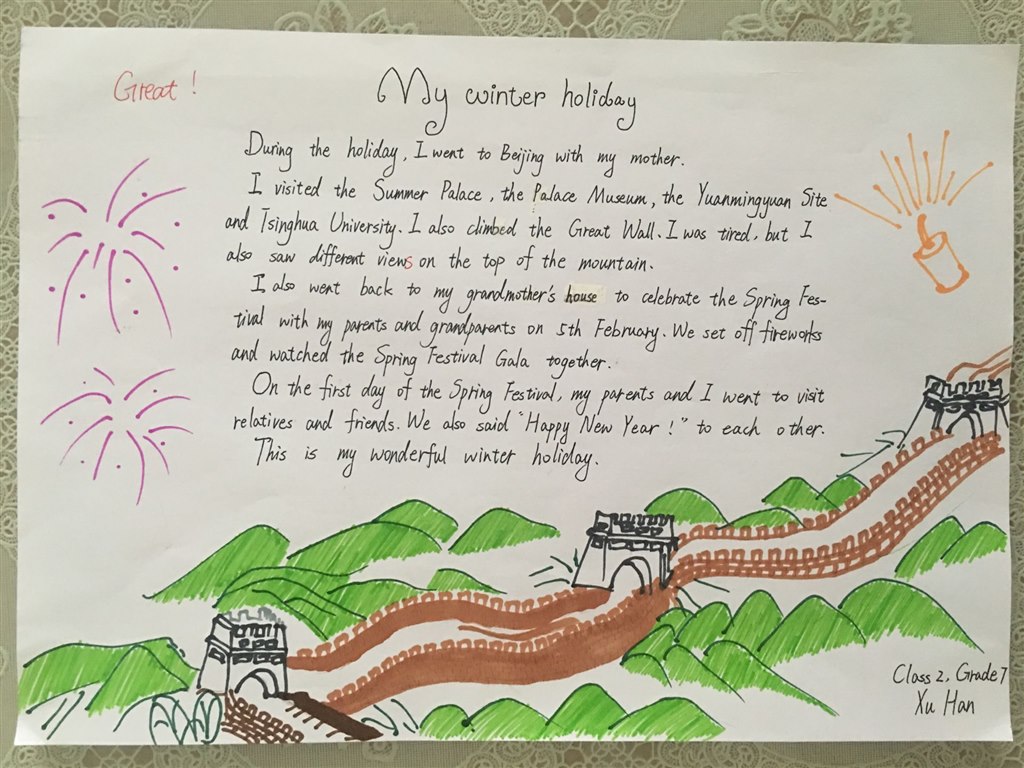 Great!
My winter holiday
During the holiday, I went to Beijing with my mother.
I visited the Summer Palace, the Palace Museum, the Yuanmingyuan Site
and Tsinghua University. I also climbed the Great Wall. I was tired, but I
also saw different views on the top of the mountain.
I also went back to my grandmother's house to celebrate the Spring Fes-
tival with my parents and grandparents on 5th February. We set off fireworks
and watched the Spring Festival Gala together.
On the first day of the Spring Festival, my parents and I went to visit
relatives and friends. We also said "Happy New Year!" to each other.
This is my wonderful winter holiday.
Class 2, Grade 7
Xu Han